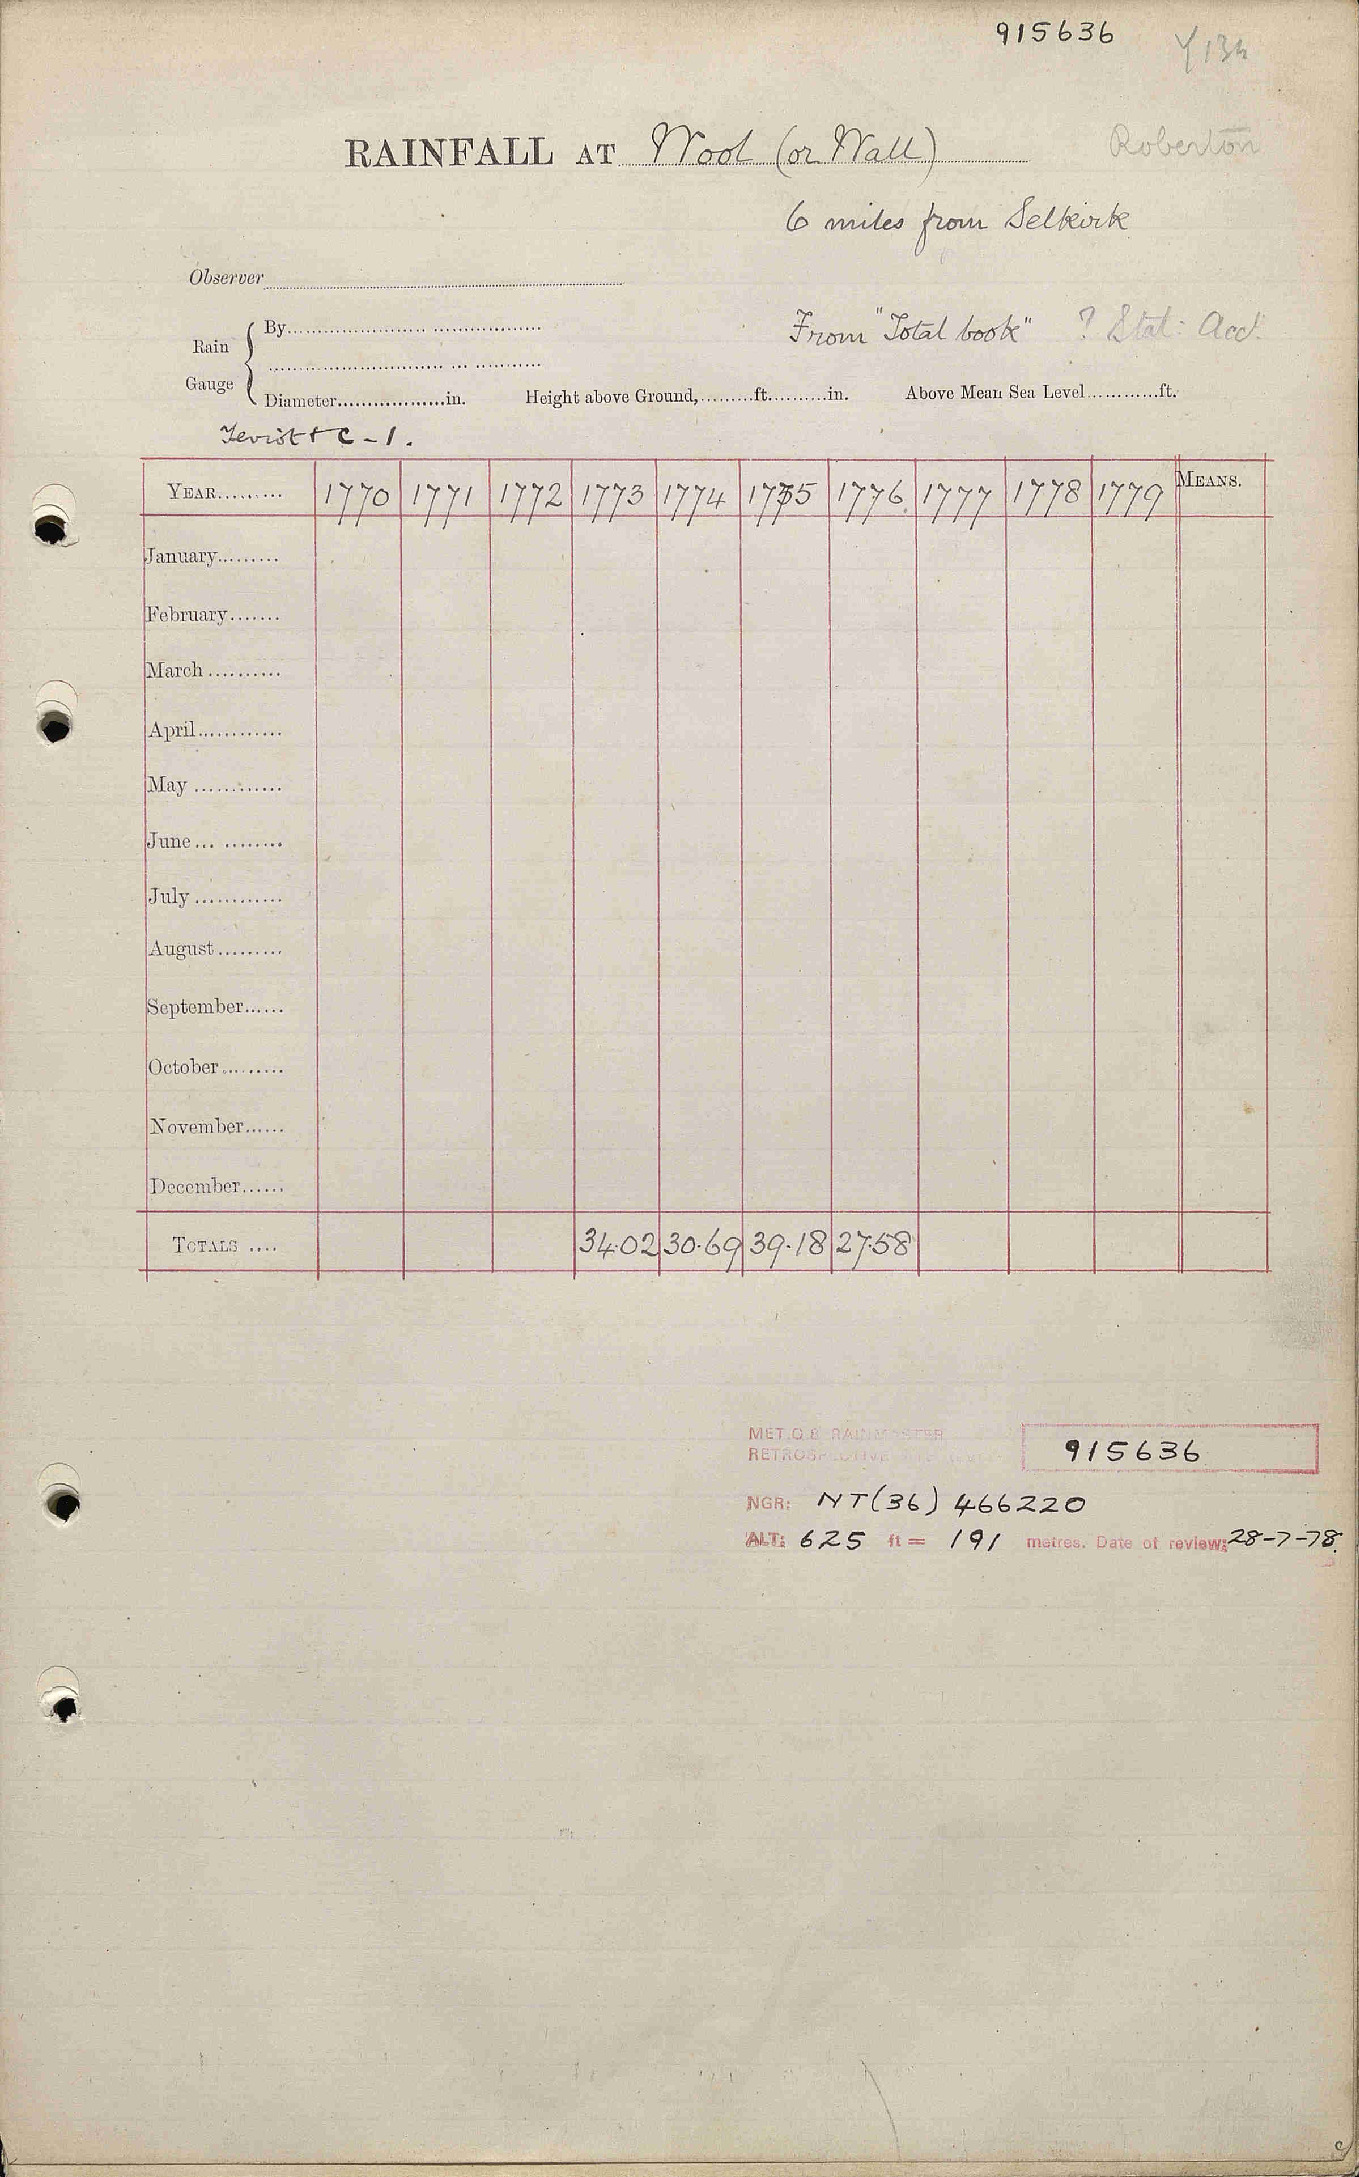 915636
RAINFALL AT Wool (or Wall) Roberton
6 miles from Selkirk
Observer
Rain Gauge
By
From "Total book" ? Stat: Acct.
Diameter in. Height above Ground, ft. in. Above Mean Sea Level ft.
Teviot + C - 1.
YEAR 1770 1771 1772 1773 1774 1775 1776 1777 1778 1779 MEANS.
January
February
March
April
May
June
July
August
September
October
November
December
TOTALS 34.02 30.69 39.18 27.58
MET.O.8 RAINMASTER
RETROSPECTIVE
915636
NGR: NT(36) 466220
ALT: 625 ft = 191 metres. Date of review: 28-7-78.